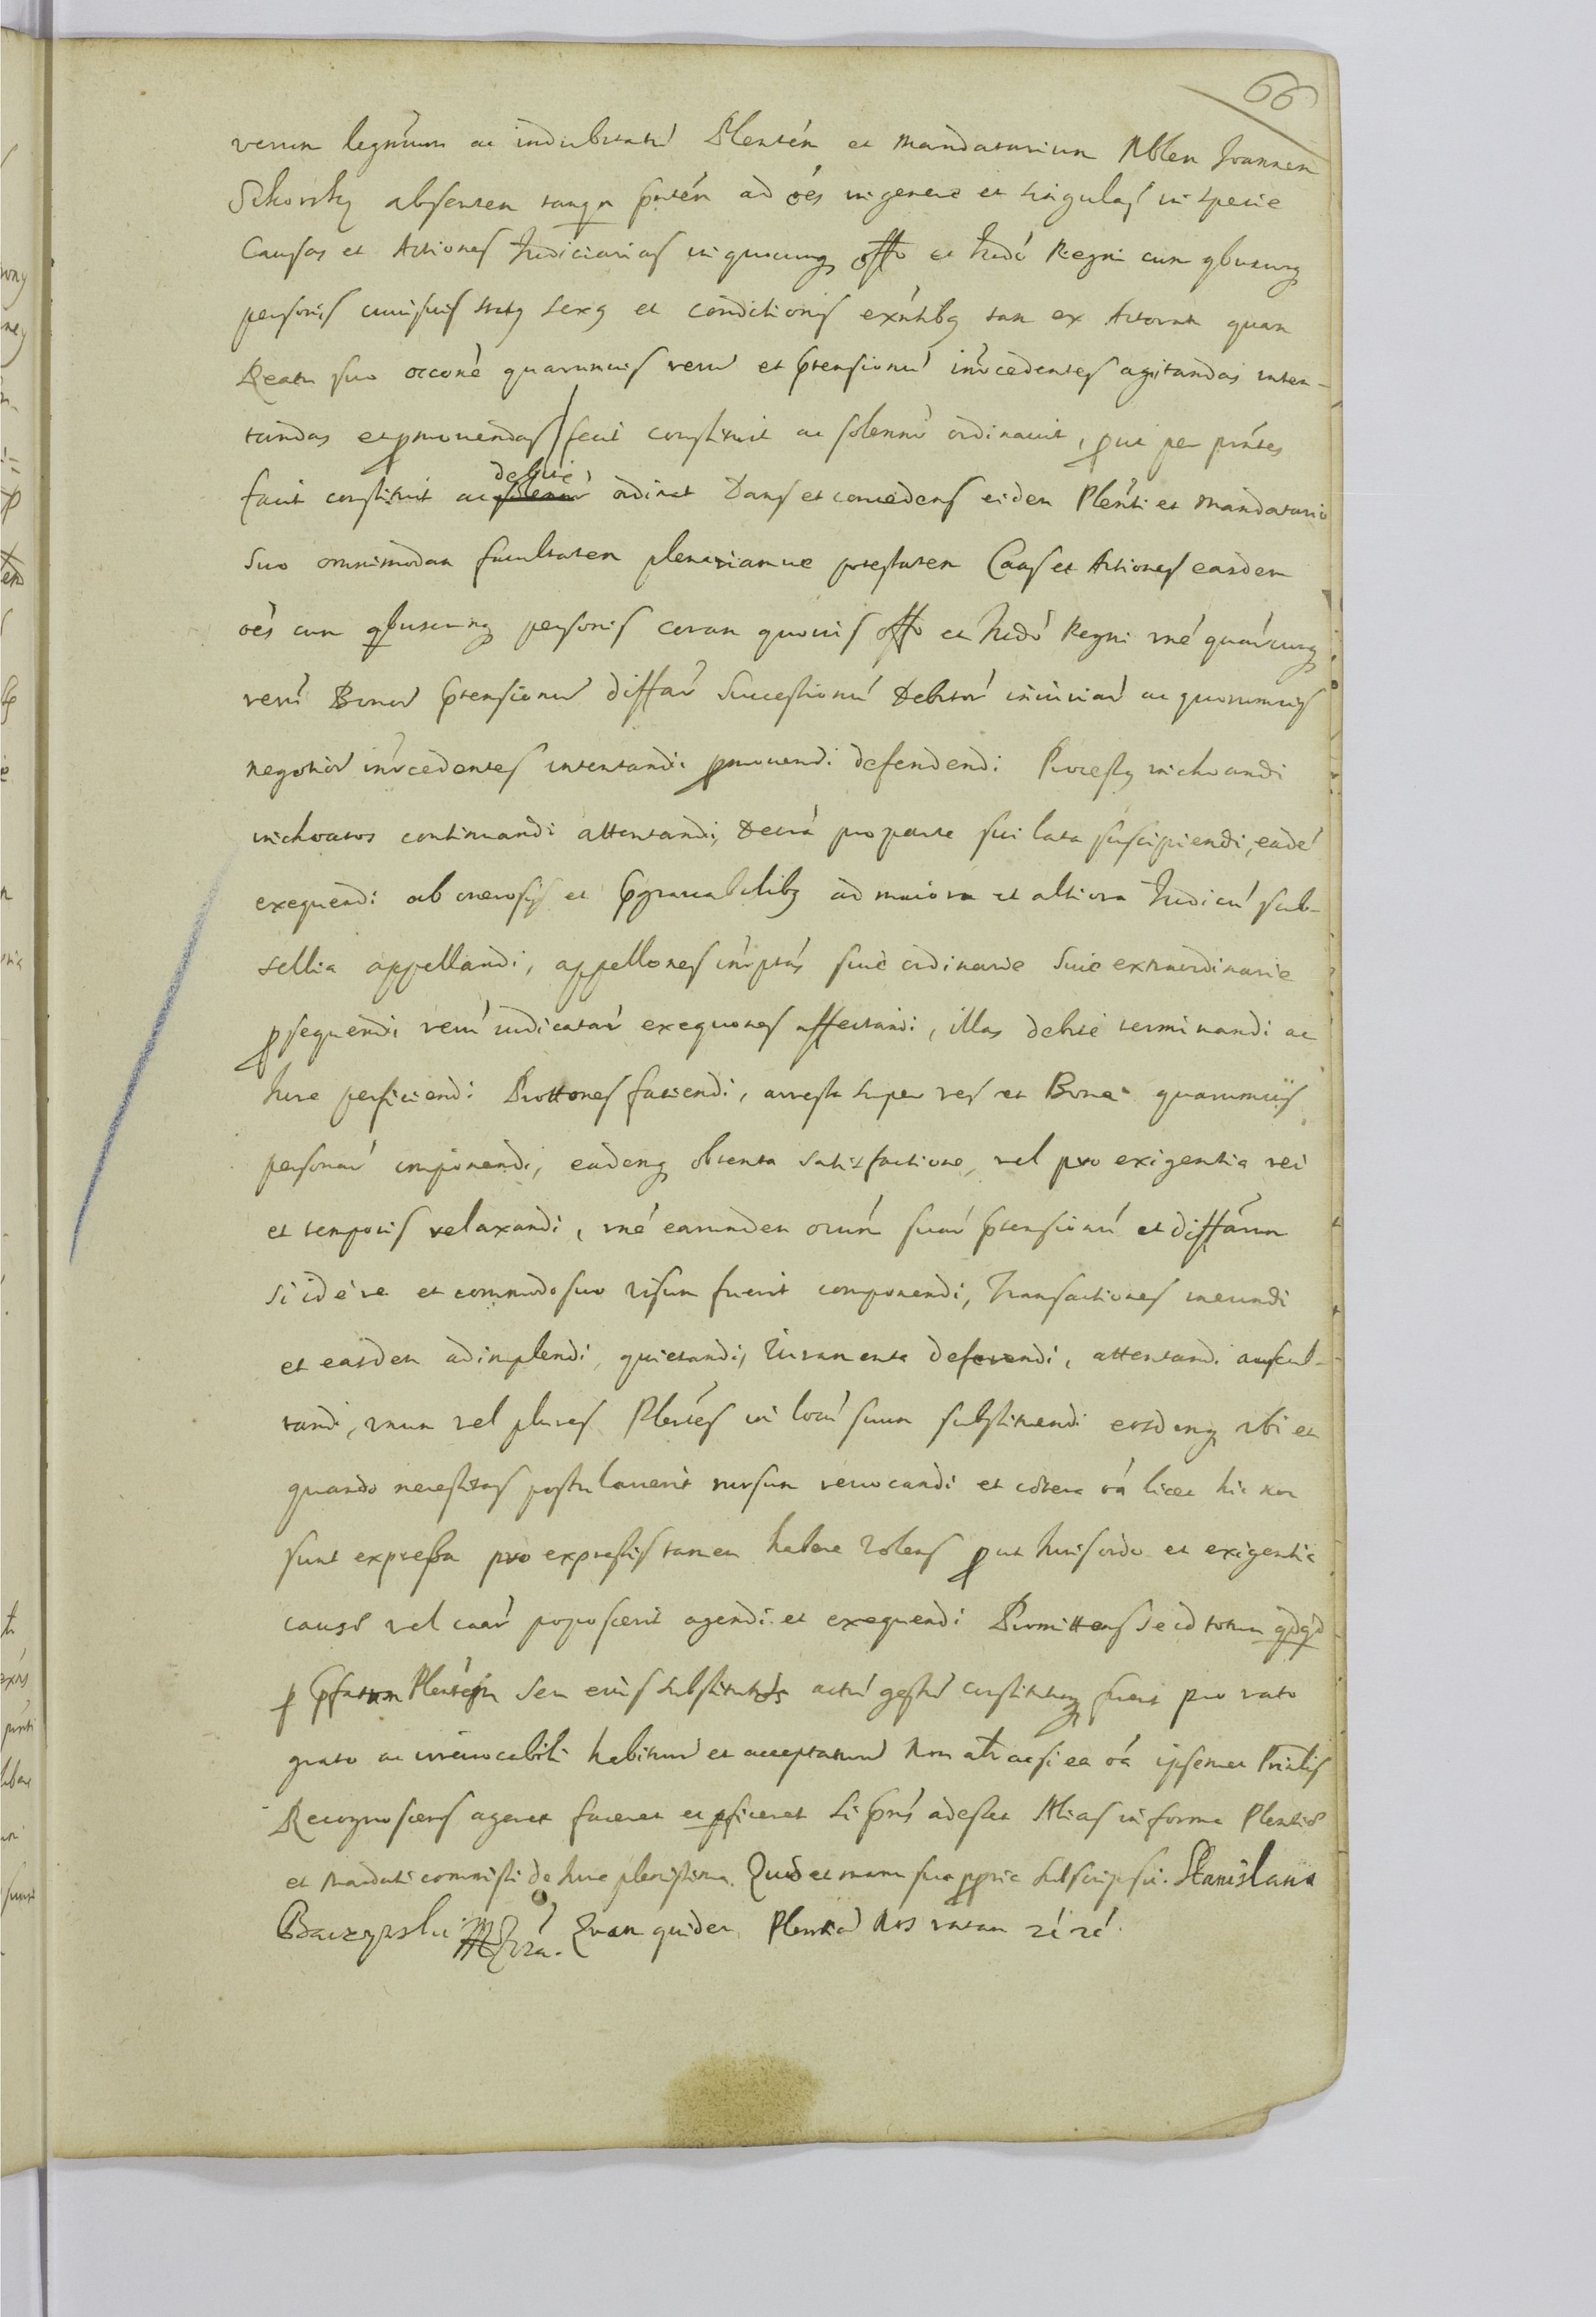 66
verum legitimum ac indubitatu Plenten et mandatarium Nblem Joannem
Sikorsky absentem tanqm pnten ad oes in genere et singulas in specie
Causas et Actiones Judiciarias in quocunq offo et Judo Regni cum qbuscunq
personis cuiusuis statq sexq et conditionis exntibq tam ex Actoratu quam
Reatu suo occone quarumuis reru et ptensionu introcedentes agitandas inten-
tandas et pmouendas fecit constituit ac solennr ordinauit, put per pntes
facit constituit ac debite ordinat Dans et concedens eidem Plenti et mandatario
suo omnimodam facultatem plenariamue potestatem Caas et Actiones easdem
oes cum qbuscunq personis coram quouis offo et Judo Regni rne quarcunq
reru Bonor ptensionu diffar Successionu Debitor iniuriar ac quorumuis
negotior introcedentes intentandi pmouendi defendendi Processq inchoandi
inchoatos continuandi attentandi, Decreta pro parte sui lata suscipiendi, eade
exequendi ab onerosis et pgrauabilibq ad maiora et altiora Judicii sub-
sellia appellandi, appellones introptas siue ordinarie siue extraordinarie
psequendi reru iudicatar exequones affectandi, illas debite terminandi ac
Jure perficiendi Prottones faciendi, arresta super res et Bona quarumuis
personar imponendi, eademq obtenta satisfactione, vel pro exigentia rei
et temporis relaxandi, rne earundem oium suar ptensionu et diffarum
si id e re et commodo suo visum fuerit componendi, Transactiones ineundi
et easdem adimplendi, quietandi, Iuramenta deferendi, attentandi auscul-
tandi, vnum vel plures Plentes in locu suum substituendi eosdemq vbi et
quando necessitas postulauerit rursum reuocandi et cetera oa licet hic non
sunt expressa pro expressis tamen habere volens put Juris ordo et exigentia
causae vel caar poposcerit agendi et exequendi Promittens se id totum qdqd
p pfatum Plentem seu eius substitutos actu gestu constitutumq fuerit pro rato
grato ac irreuocabili habiturur et accepturur Non atr ac si ea oa ipsemet Prinlis
Recognoscens ageret faceret et pficeret si pns adesset Alias in forma Plentiae
et mandati commissi de Jure plenissima. Quod et manu sua ppria subscripsit. Stanislaus
Baczynski mppa. Quam quidem Plentia Nos ratam rc rc.